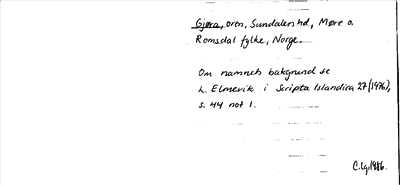 Gjøra, oren, Sundalen hd, Møre o.
Romsdal fylke, Norge.
Om namnets bakgrund se
L. Elmevik i Scripta Islandica 27 (1976),
s. 44 not 1.
C.lg. 1986.